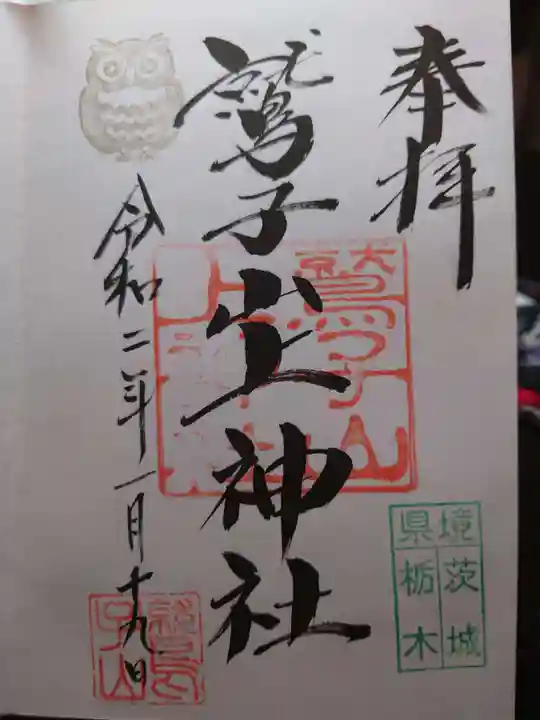 奉拝
鷲子山上神社
令和二年一月十九日
鷲子山
上神社
境茨城
県栃木
鷲子山